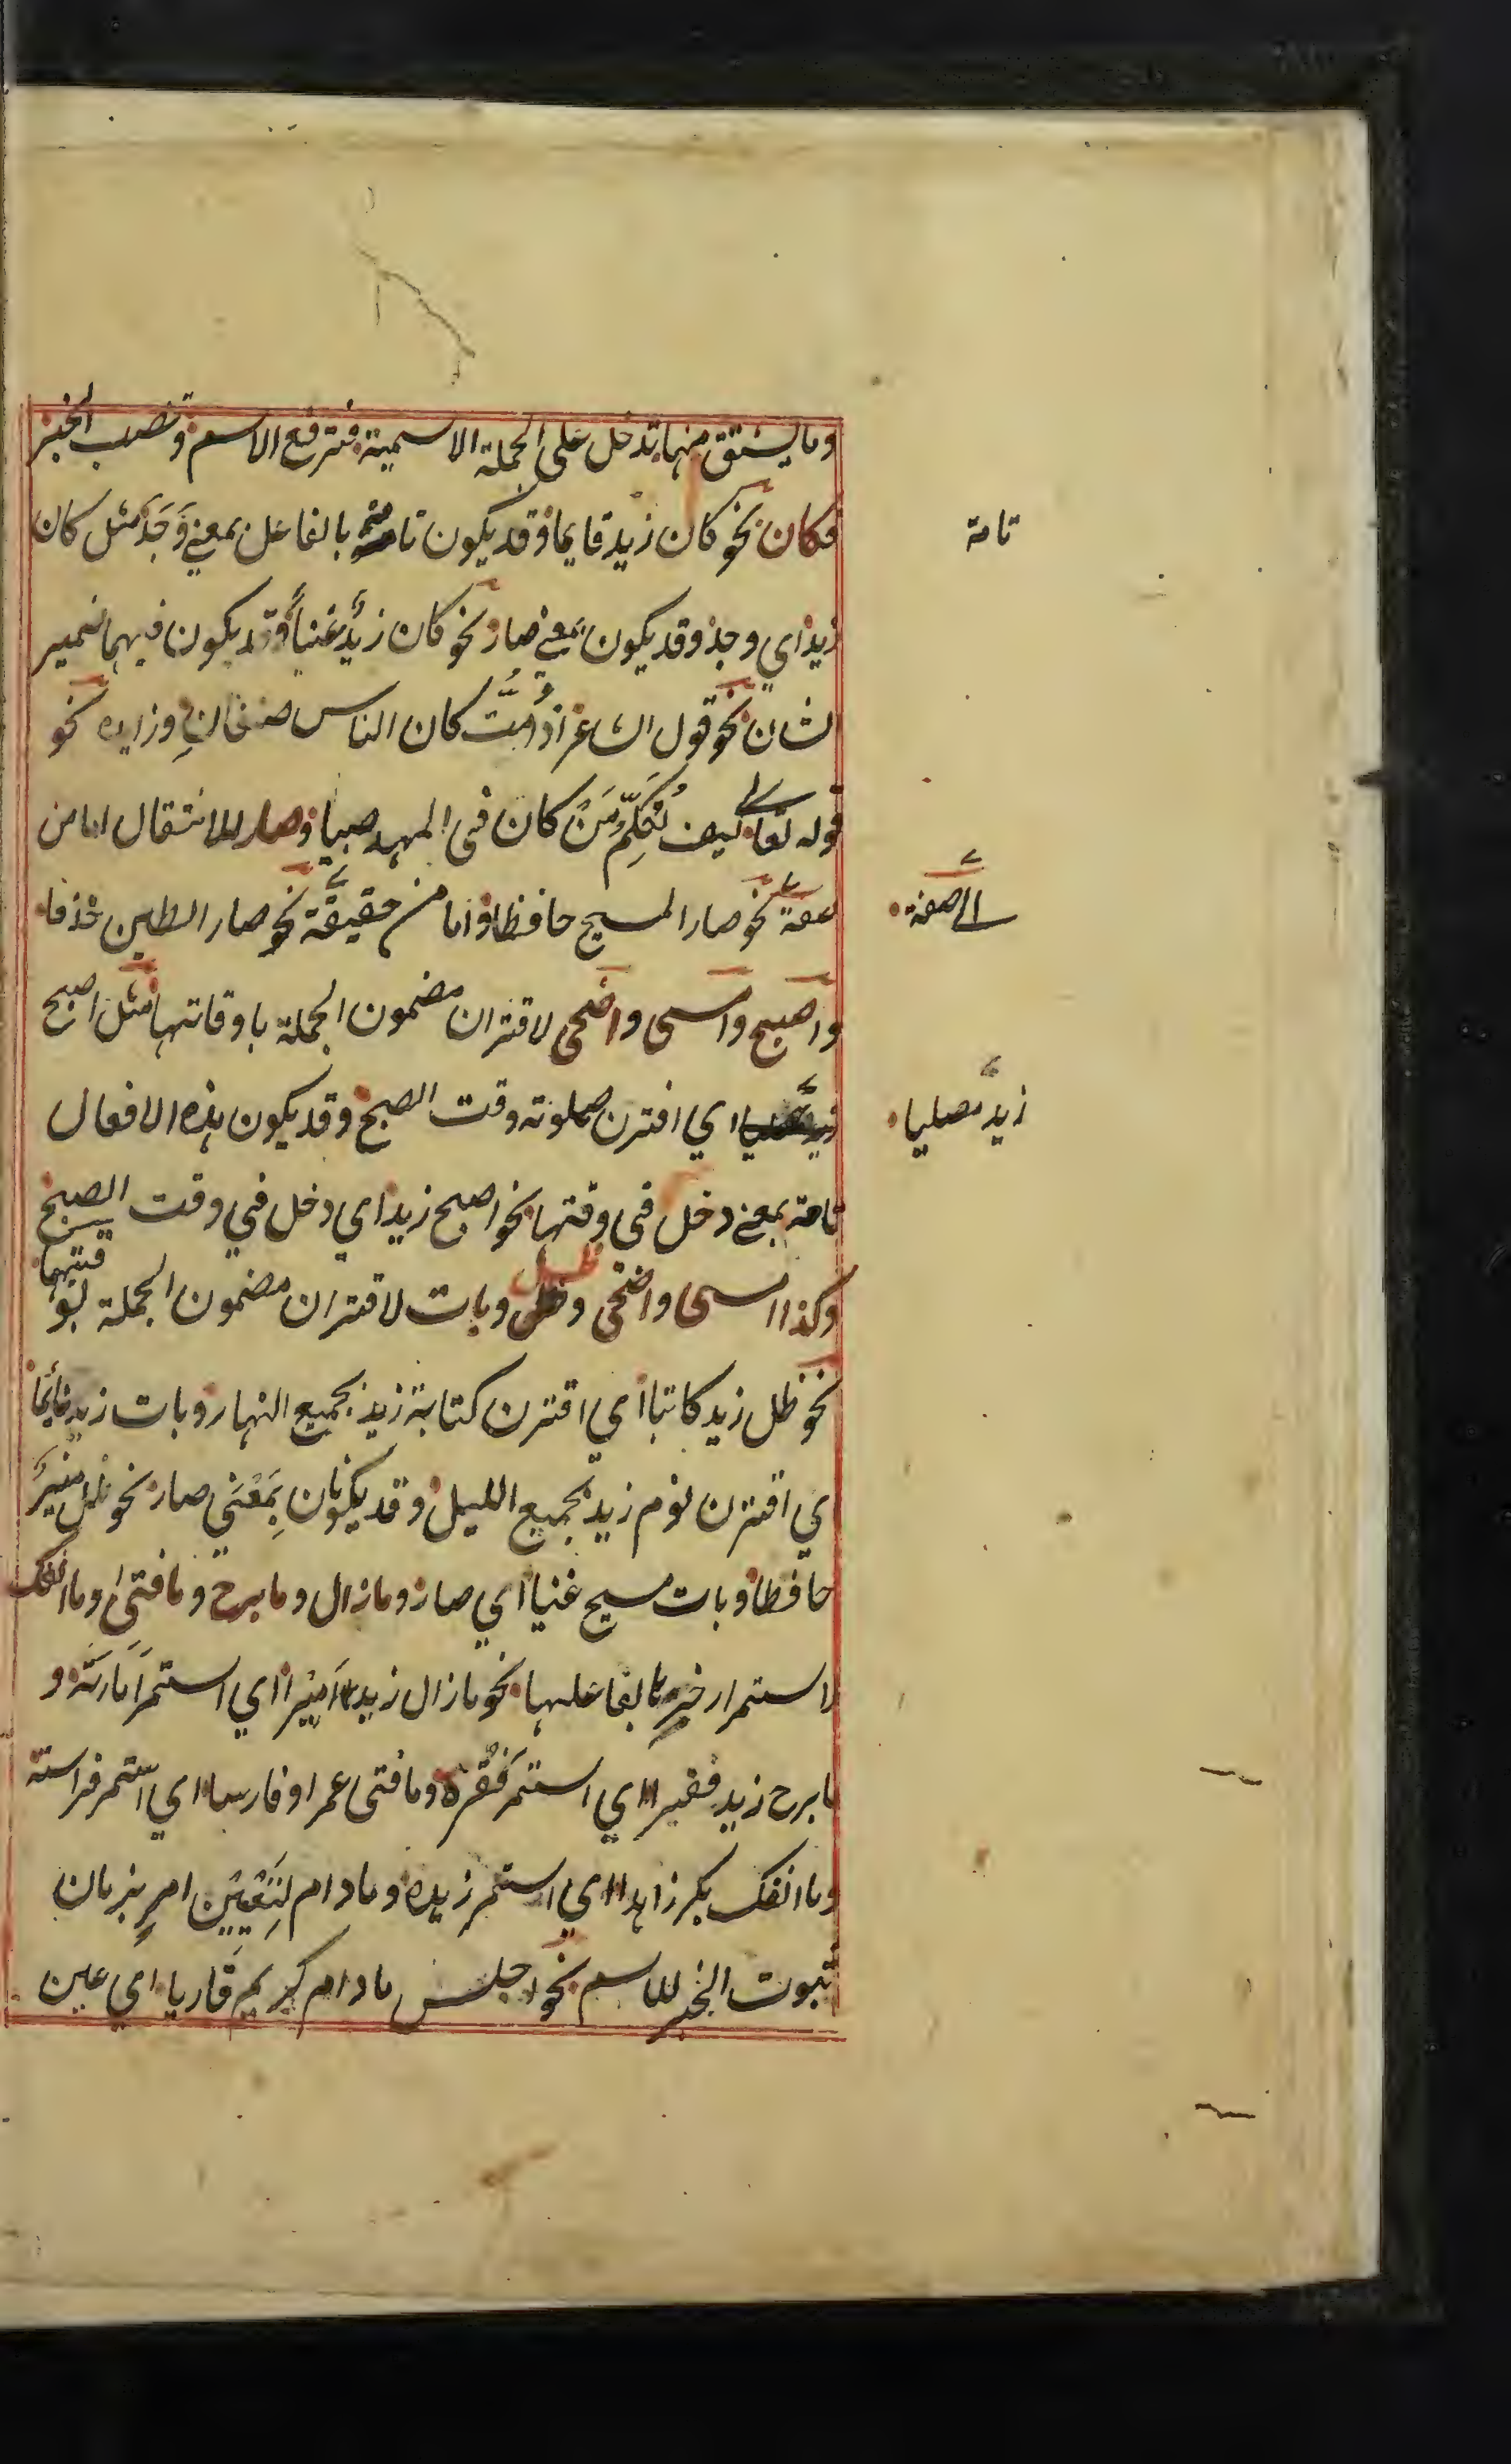 وما يشتق منها تدخل على الجملة الاسمية فترفع الاسم وتنصب الخبر
فكان نحو كان زيد قايما وقد يكون تامة بالفاعل بمعنى وَجَدَ مثل كان
تامة
زيد اي وجد وقد يكون بمعنى صار نحو كان زيدٌ غنياً وقد يكون فيهما ضمير
الشان نحو قول الشاعر اذا مُتُّ كان الناس صنفانِ وزايده نحو
قوله تعالى كيف نُكَلِّمُ مَنْ كان فى المهد صبيا وصار للانتقال اما من
صفة نحو صار المسيح حافظا واما من حقيقة نحو صار الطين خذفا
الى صفة
واصبح وامسى واضحى لاقتران مضمون الجملة باوقاتها مثل اصبح
اي اقترن صلوته وقت الصبح وقد يكون هذه الافعال
زيد مصليا
تامة بمعنى دخل فى وقتها نحو اصبح زيد اي دخل في وقت الصبح
وكذا امسى واضحى وظل وبات لاقتران مضمون الجملة بوقتيهما
ظل
نحو ظل زيد كاتبا اي اقترن كتابة زيد بجميع النهار وبات زيد نائما
اي اقترن نوم زيد بجميع الليل وقد يكونان بِمَعْني صار نحو ظل منير
حافظا وبات مسيح غنيا اي صار وما زال وما برح وما فتئ وما انفك
لاستمرار خبرها لفاعلها نحو ما زال زيد اَميرا اي استمرّ اَمارته و
ما برح زيد فقيرا اي استمر فَقْره وما فتى عمرا وفارسا اي استمر فراسته
وما انفك بكر زاهدا اي استمر زهده وما دام لِتَعْيين امرٍ بزمان
ثبوت الخبر للاسم نحو اجلس ما دام كريم قاريا اي عين